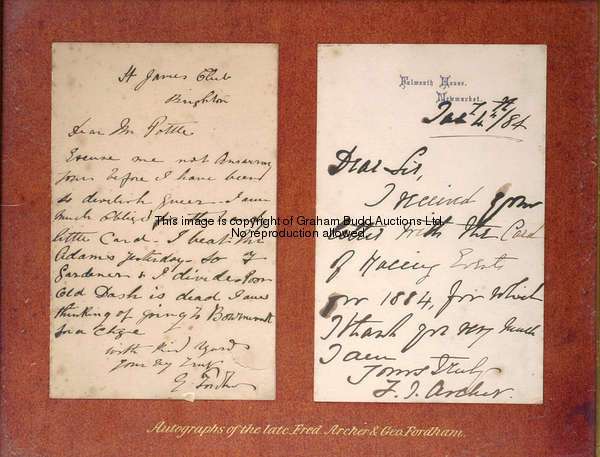 St James Club
Brighton
Dear Mr Pottle
Excuse me not Answering
yours before I have been
so devilish queer - I am
much obliged for the
little Card. I beat Mr
Adams yesterday - So
Gardener & I divide Poor
Old Dash is dead I am
thinking of going to
for a Change
with Kind regards
yours very truly
G Fordham
Falmouth House,
Newmarket.
Jan 4th/84
Dear Sir,
I received your
letter with the Card
of Racing Events
for 1884, for which
I thank you very much
I am
Yours Truly
F. J. Archer.
This image is copyright of Graham Budd Auctions Ltd.
No reproduction allowed.
Autographs of the late Fred Archer & Geo. Fordham.